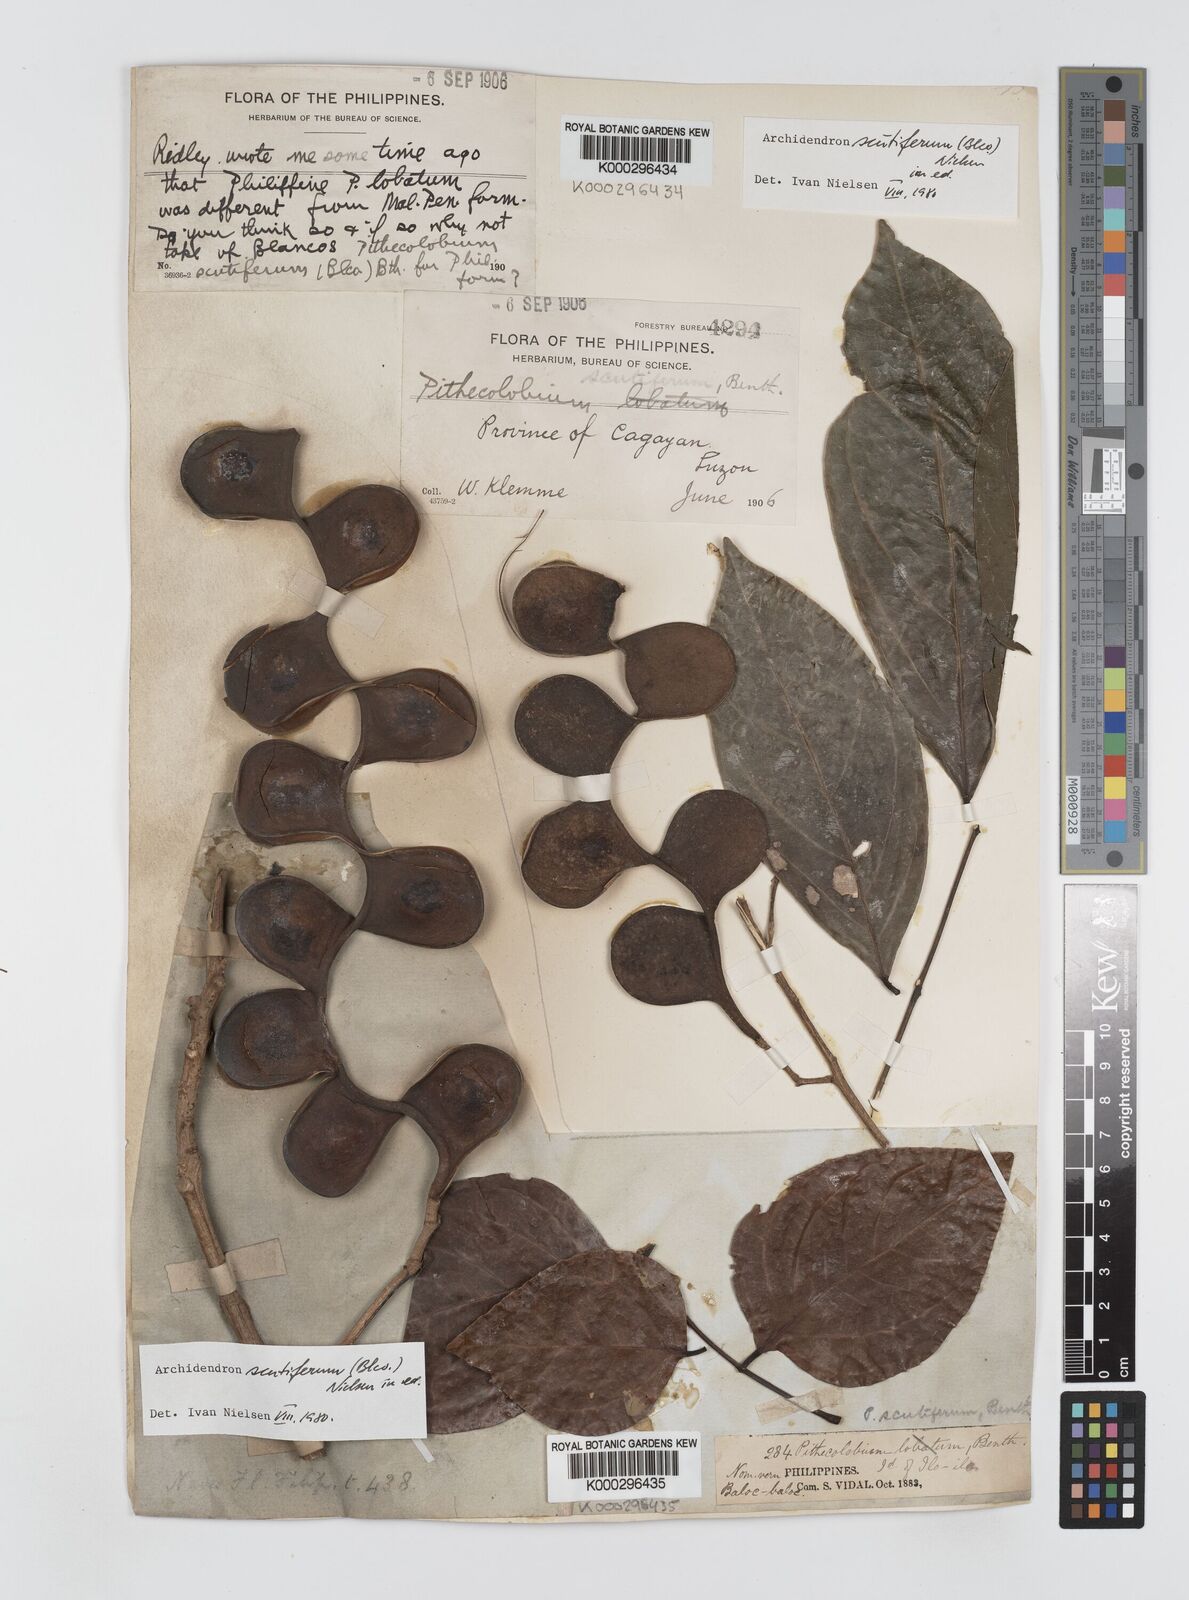 - 6 SEP 1906
FLORA OF THE PHILIPPINES.
HERBARIUM OF THE BUREAU OF SCIENCE.
Ridley wrote me some time ago
that Philippine P. lobatum
was different from Mal. Pen. form.
Do you think so & if so why not
take up Blancos Pithecolobium
scutiferum (Blco) Bth. for Phil.
form?
No.
36936-2
190
ROYAL BOTANIC GARDENS KEW
K000296434
K000296434
Archidendron scutiferum (Blco.)
Nielsen
in ed.
Det. Ivan Nielsen VIII. 1980
- 6 SEP 1906
FORESTRY BUREAU NO. 4294
FLORA OF THE PHILIPPINES.
HERBARIUM, BUREAU OF SCIENCE.
scutiferum, Benth.
Pithecolobium lobatum
Province of Cagayan
Luzon
Coll. W. Klemme
43759-2
June 1906
Archidendron scutiferum (Blco.)
Nielsen in ed.
Det. Ivan Nielsen VIII. 1980.
Fl. Filip. t. 438.
ROYAL BOTANIC GARDENS KEW
K000296435
K000296435
P. scutiferum, Benth
284 Pithecolobium lobatum, Benth.
Nom. vern PHILIPPINES. Id. of Ilo-ilo
Baloc-baloc. Com. S. VIDAL. Oct. 1883,
inches
centimeters
Density
Don Williams
M000928
Kew
ROYAL BOTANIC GARDENS
copyright reserved
0 1 2 3 4 5 6 7 8 9 10
cm